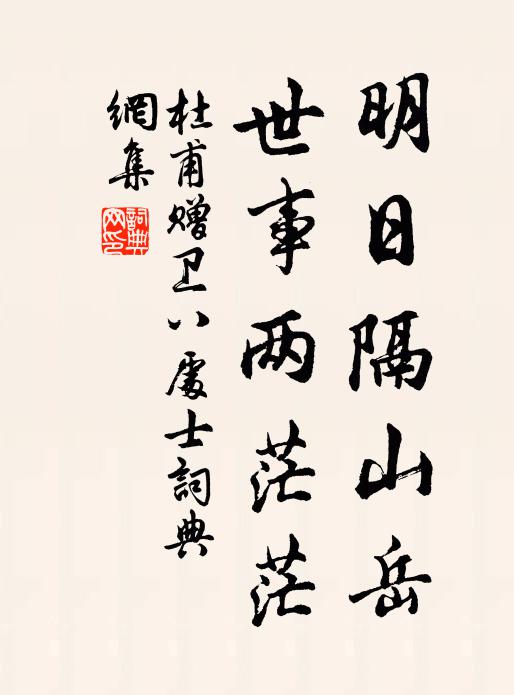 明日隔山岳
世事两茫茫
杜甫赠卫八處士詞典
網集
詞典
网印